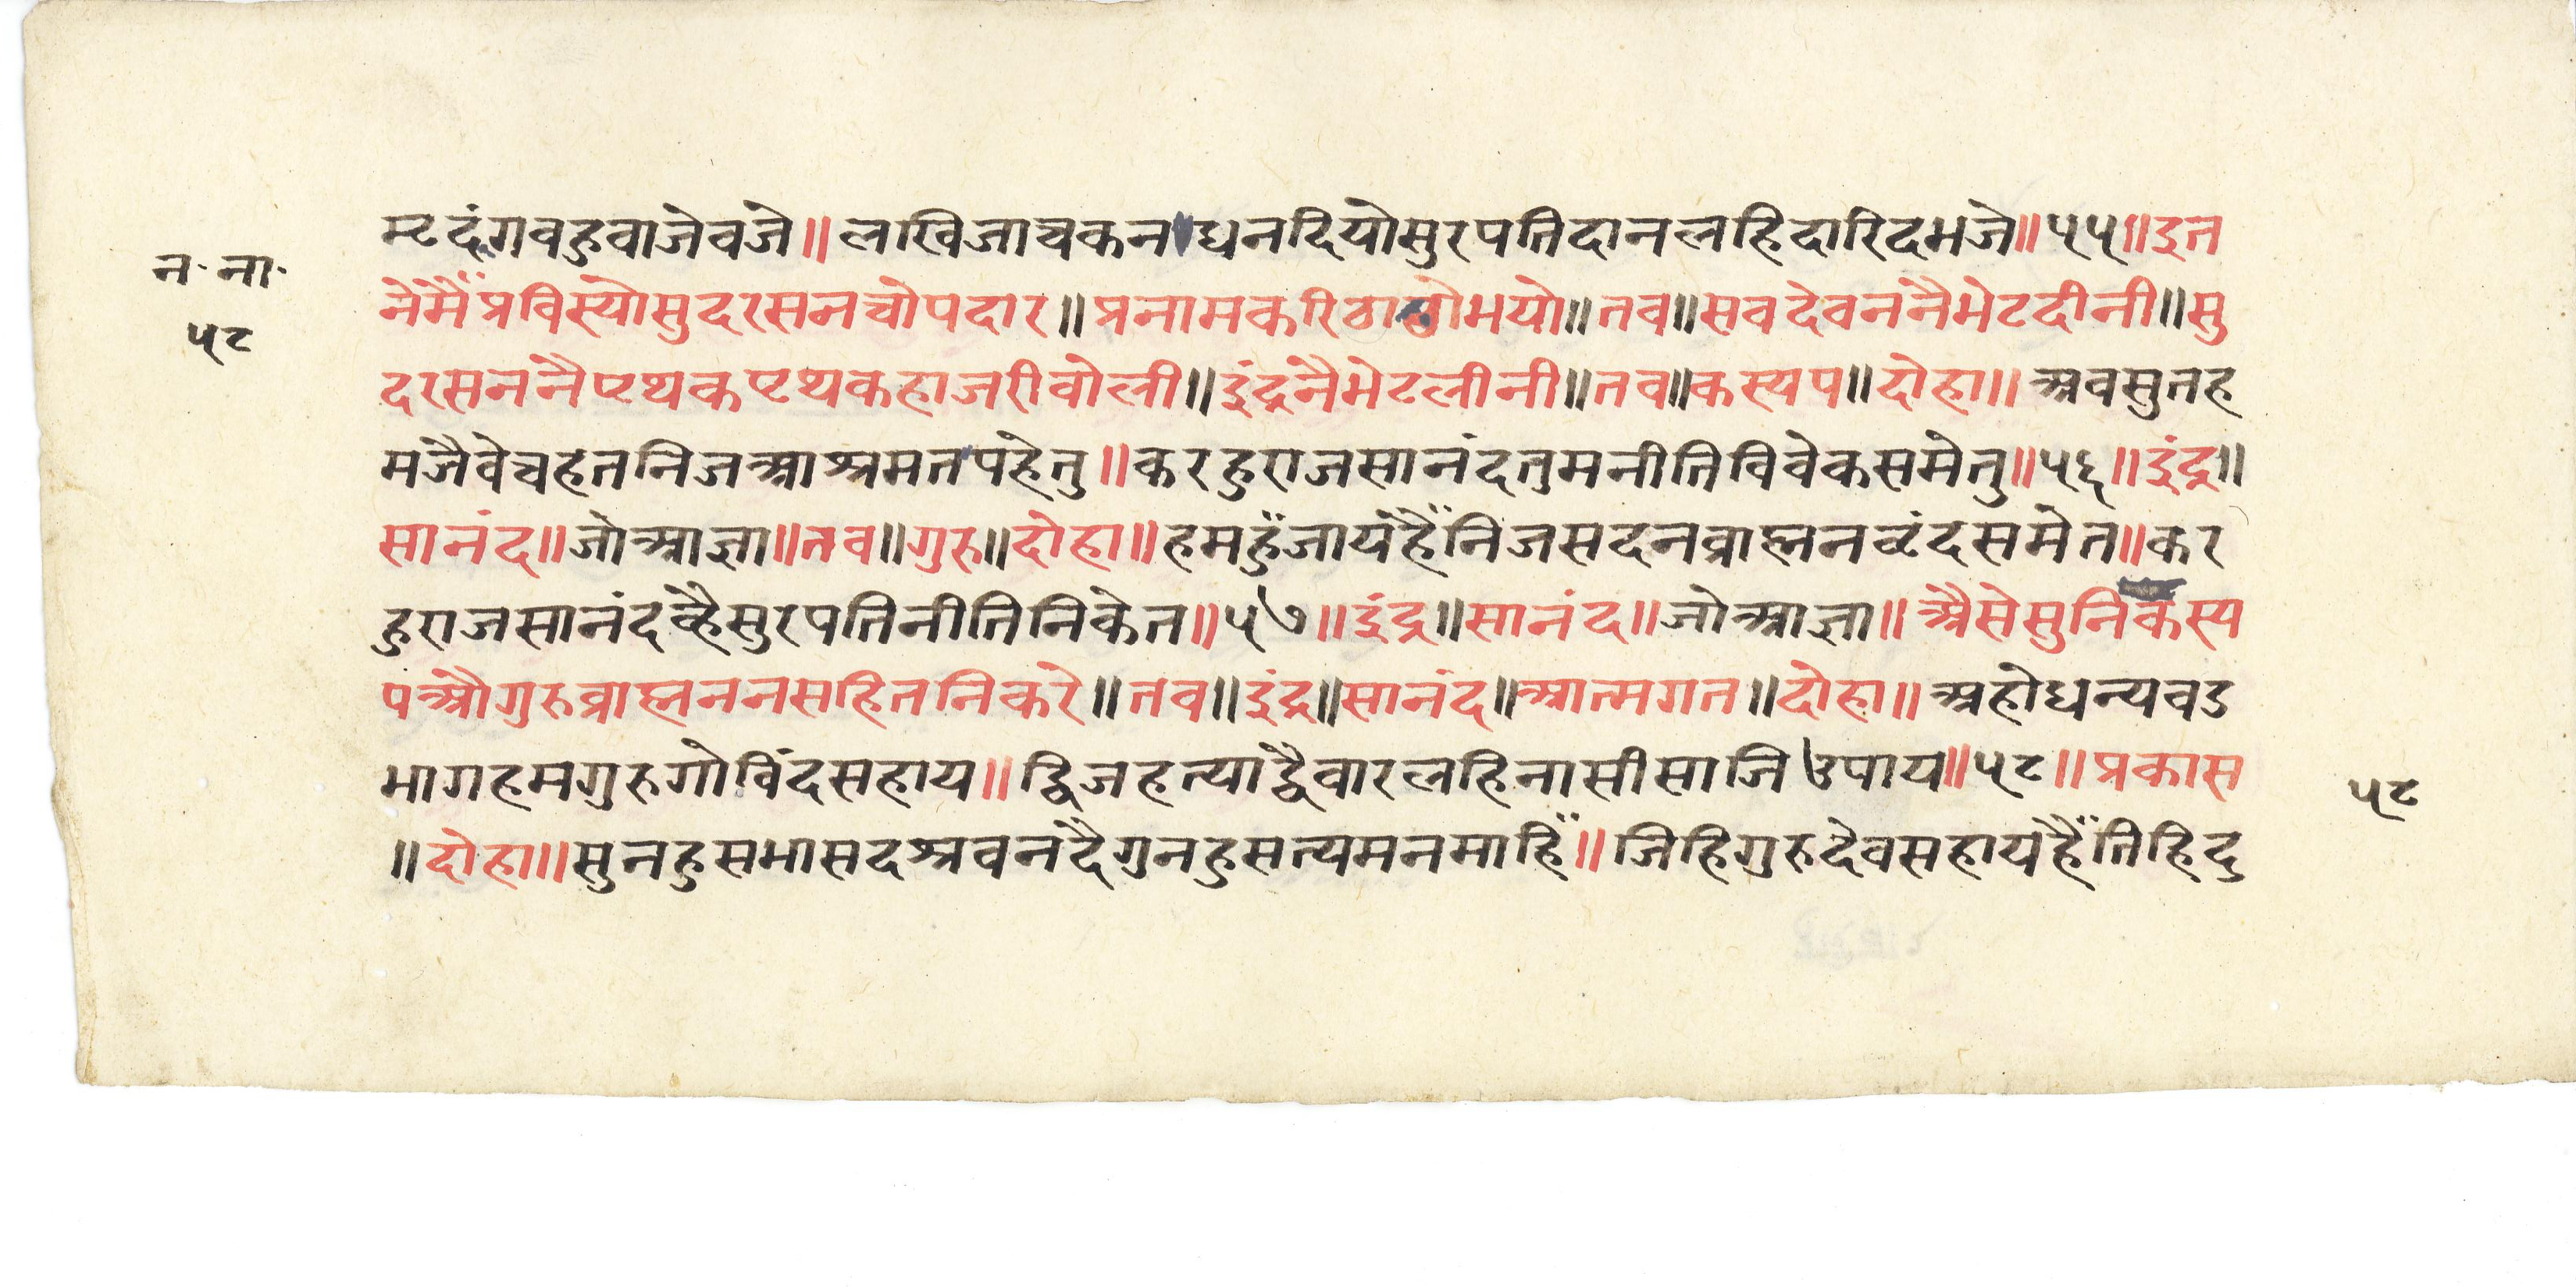 न॰ ना॰
५८
मृदंगवहुवाजेवजे॥ लखिजाचकनधनदियोसुरपतिदानलहिदारिदभजे॥५५॥इत
नेंमैंप्रविस्योसुदरसनचोपदार॥प्रनामकरिठाढोभयो॥तव॥सवदेवननैभेटदीनी॥सु
दरसननैपृथकपृथकहाजरीवोली॥इंद्रनैभेटलीनी॥तव॥कस्यप॥दोहा॥ अवसुतह
मजैवेचहतनिजआश्रमतपहेतु॥करहुराजसानंदतुमनीतिविवेकसमेतु॥५६॥इंद्र॥
सानंद॥जोआज्ञा॥तव॥गुरु॥दोहा॥हमहुँजायहैंनिजसदनव्राह्मनवृंदसमेत॥कर
हुराजसानंदव्हैसुरपतिनीतिनिकेत॥५७॥इंद्र॥सानंद॥जोआज्ञा॥ अैसेसुनिकस्य
पऔगुरुव्राह्मननसहितनिकरे॥तव॥इंद्र॥सानंद॥आत्मगत॥दोहा॥ अहोधन्यवड
भागहमगुरुगोविंदसहाय॥ द्विजहत्याद्वैवारलहिनासीसाजिउपाय॥५८॥प्रकास
॥दोहा॥सुनहुसभासदश्रवनदैगुनहुसत्यमनमाहिँ॥जिहिगुरुदेवसहायहैंतिहिदु
५८